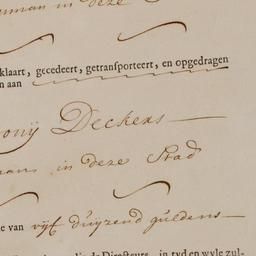 man in deze
klaart, gecedeert, getransporteert, en opgedragen
n aan
onij Deckers
mans in deze Stad
e van vijf duyzend guldens
de Directeurs, in tyd en wyle zul-